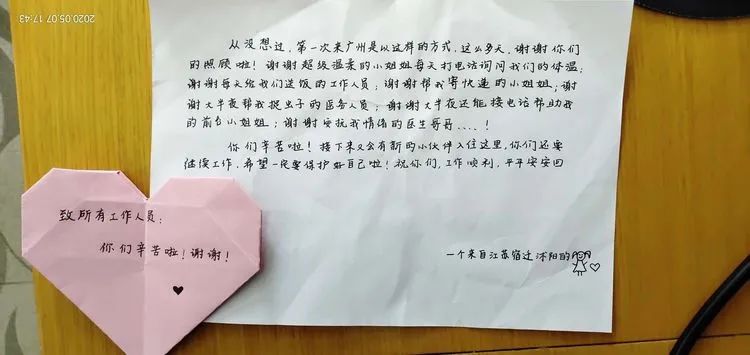 2020.05.07 17:43
从没想过，第一次来广州是以这样的方式，这么多天，谢谢你们
的照顾啦！谢谢超级温柔的小姐姐每天打电话询问我们的体温；
谢谢每天给我们送饭的工作人员；谢谢帮我寄快递的小姐姐；谢
谢大半夜帮我捉虫子的医务人员；谢谢大半夜还能接电话帮助我
的前台小姐姐；谢谢安抚我情绪的医生哥哥....！
你们辛苦啦！接下来又会有新的小伙伴入住这里，你们还要
继续工作，希望一定要保护好自己啦！祝你们，工作顺利，平平安安回
一个来自江苏宿迁沭阳的
致所有工作人员：
你们辛苦啦！谢谢！